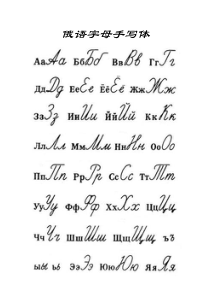 俄语字母手写体
Аа Аа Бб Бб Вв Вв Гг Гг
Дд Дд Ее Ее Ёё Ёё Жж Жж
Зз Зз Ии Ии Йй Йй Кк Кк
Лл Лл Мм Мм Нн Нн Оо Оо
Пп Пп Рр Рр Сс Сс Тт Тт
Уу Уу Фф Фф Хх Хх Цц Цц
Чч Чч Шш Шш Щщ Щщ ъ ъ
ы ы ь ь Ээ Ээ Юю Юю Яя Яя